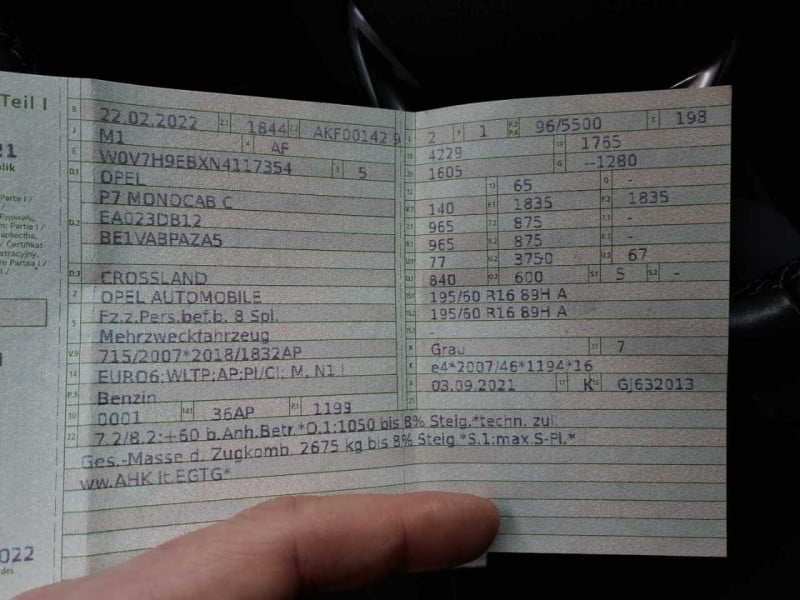 Teil I
B 22.02.2022 2.1 1844 2.2 AKF00142 9
J M1 4 AF
E W0V7H9EBXN4117354 3 5
D.1 OPEL
P7 MONOCAB C
D.2 EA023DB12
BE1VABPAZA5
D.3 CROSSLAND
2 OPEL AUTOMOBILE
5 Fz.z.Pers.bef.b. 8 Spl.
Mehrzweckfahrzeug
V.9 715/2007*2018/1832AP
14 EURO6;WLTP;AP;PI/CI; M, N1 I
P.3 Benzin
10 0001 14.1 36AP P.1 1199
22 7.2/8.2:+60 b.Anh.Betr.*O.1:1050 bis 8% Steig.*techn. zul.
Ges.-Masse d. Zugkomb. 2675 kg bis 8% Steig.*S.1:max S-Pl.*
ww.AHK lt.EGTG*
L 2 9 1 P.2 P.4 96/5500 T 198
18 4229 19 1765
20 1605 G --1280
12 - 13 65 Q -
V.7 140 F.1 1835 F.2 1835
7.1 965 7.2 875 7.3 -
8.1 965 8.2 875 8.3 -
U.1 77 U.2 3750 U.3 67
O.1 840 O.2 600 S.1 5 S.2 -
15.1 195/60 R16 89H A
15.2 195/60 R16 89H A
15.3 -
R Grau 11 7
K e4*2007/46*1194*16
6 03.09.2021 17 K 16 GJ632013
21
022